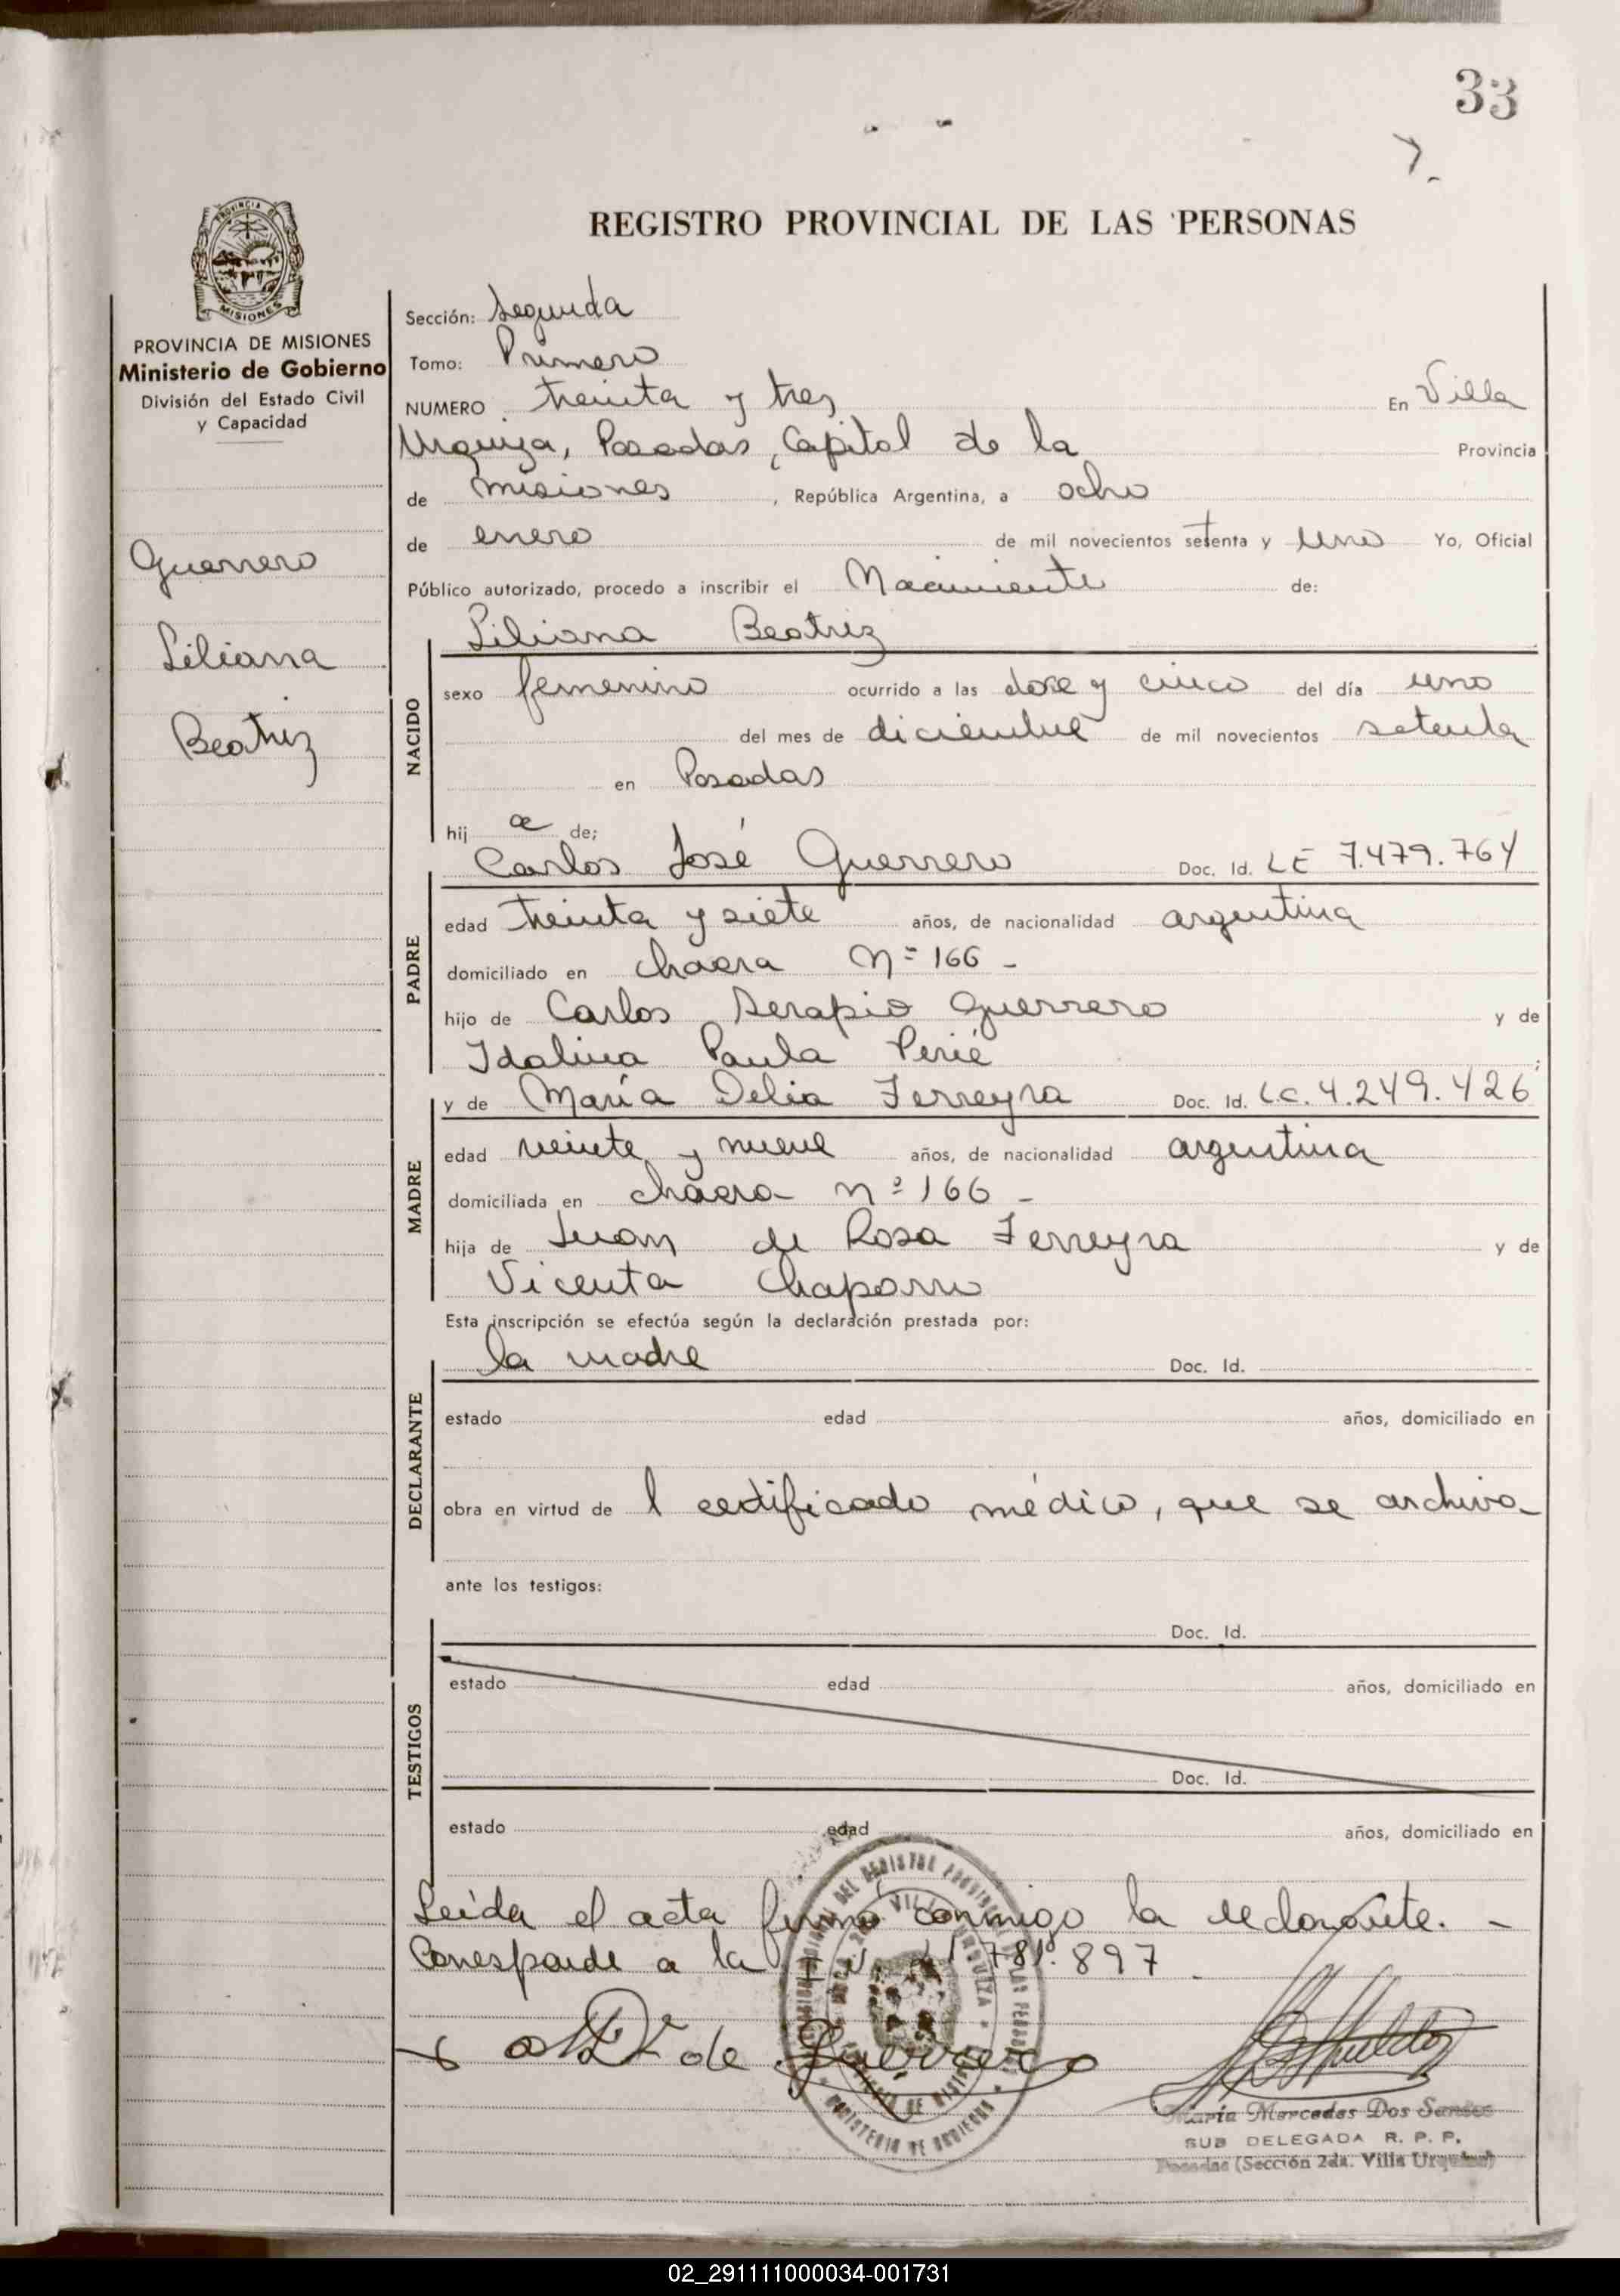 33
7.
REGISTRO PROVINCIAL DE LAS PERSONAS
PROVINCIA DE MISIONES
Ministerio de Gobierno
División del Estado Civil
y Capacidad
Guerrero
Liliana
Beatriz
Sección: Segunda
Tomo: Primero
NUMERO treinta y tres En Villa
Urquiza, Posadas, Capital de la Provincia
de misiones, República Argentina, a ocho
de enero de mil novecientos setenta y uno Yo, Oficial
Público autorizado, procedo a inscribir el Nacimiento de:
Liliana Beatriz
NACIDO
sexo femenino ocurrido a las doce y cinco del día uno
del mes de diciembre de mil novecientos setenta
en Posadas
hij a de;
Carlos José Guerrero Doc. Id. LE 7.479.764
PADRE
edad treinta y siete años, de nacionalidad argentina
domiciliado en chacra Nº 166 -
hijo de Carlos Serapio Guerrero y de
Idalina Paula Perié ;
y de María Delia Ferreyra Doc. Id. L.C. 4.249.426
MADRE
edad veinte y nueve años, de nacionalidad argentina
domiciliada en chacra nº 166 -
hija de Juan de Rosa Ferreyra y de
Vicenta Chaparro
Esta inscripción se efectúa según la declaración prestada por:
la madre Doc. Id.
DECLARANTE
estado edad años, domiciliado en
obra en virtud de l certificado médico, que se archiva
ante los testigos:
Doc. Id.
TESTIGOS
estado edad años, domiciliado en
Doc. Id.
estado edad años, domiciliado en
Leída el acta firmó conmigo la declarante. -
Corresponde a la 781.897
de Guerrero
María Mercedes Dos Santos
SUB DELEGADA R. P. P.
Posadas (Sección 2da. Villa Urquiza)
02_291111000034-001731